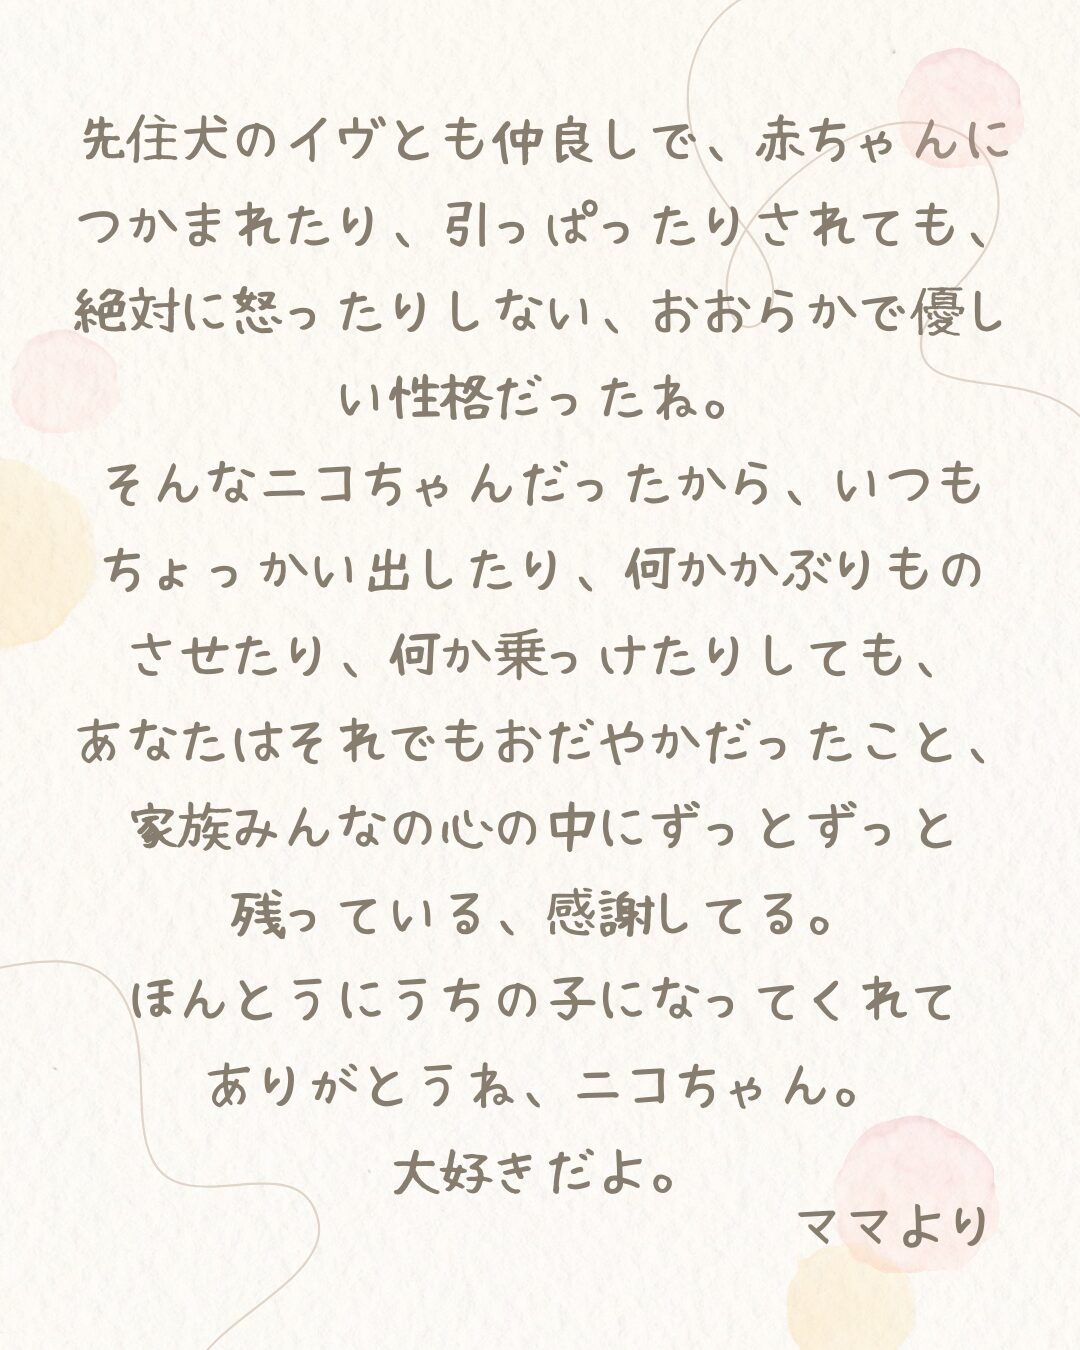 先住犬のイヴとも仲良しで、赤ちゃんに
つかまれたり、引っぱったりされても、
絶対に怒ったりしない、おおらかで優し
い性格だったね。
そんなニコちゃんだったから、いつも
ちょっかい出したり、何かかぶりもの
させたり、何か乗っけたりしても、
あなたはそれでもおだやかだったこと、
家族みんなの心の中にずっとずっと
残っている、感謝してる。
ほんとうにうちの子になってくれて
ありがとうね、ニコちゃん。
大好きだよ。
ママより